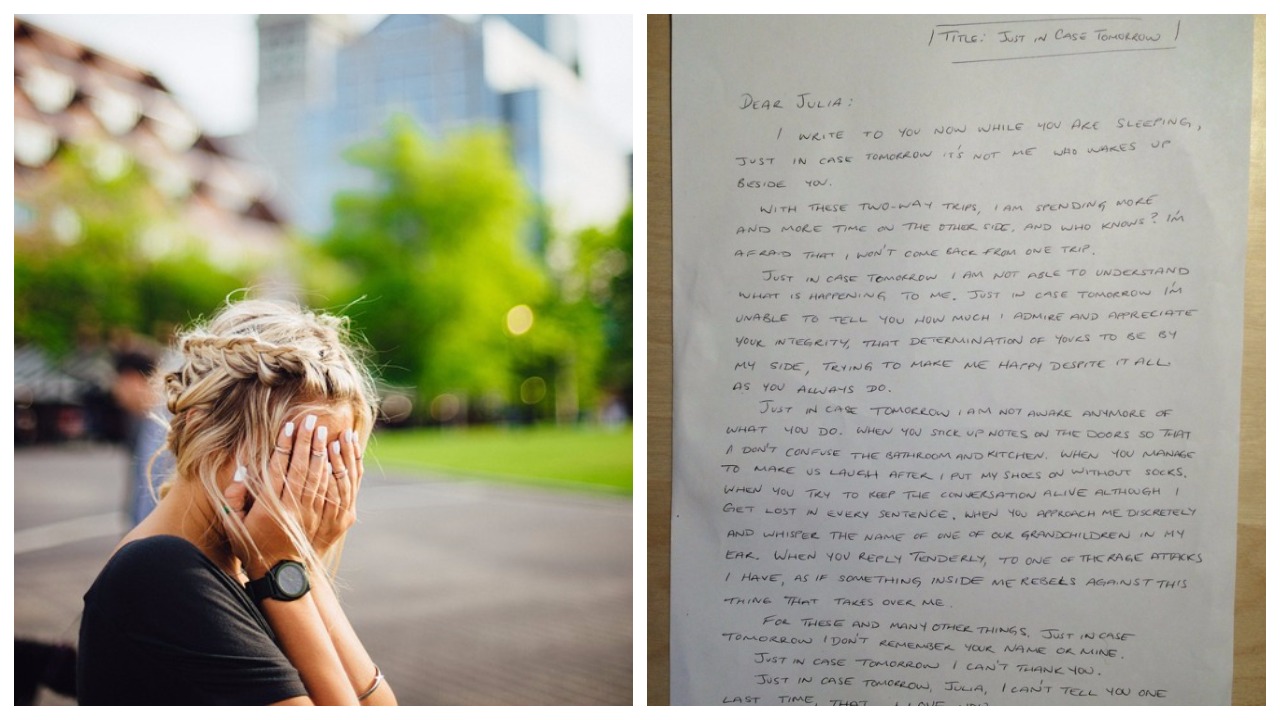 TITLE: JUST IN CASE TOMORROW
DEAR JULIA:
I WRITE TO YOU NOW WHILE YOU ARE SLEEPING,
JUST IN CASE TOMORROW IT'S NOT ME WHO WAKES UP
BESIDE YOU.
WITH THESE TWO-WAY TRIPS, I AM SPENDING MORE
AND MORE TIME ON THE OTHER SIDE, AND WHO KNOWS? I'M
AFRAID THAT I WON'T COME BACK FROM ONE TRIP.
JUST IN CASE TOMORROW I AM NOT ABLE TO UNDERSTAND
WHAT IS HAPPENING TO ME. JUST IN CASE TOMORROW I'M
UNABLE TO TELL YOU HOW MUCH I ADMIRE AND APPRECIATE
YOUR INTEGRITY, THAT DETERMINATION OF YOURS TO BE BY
MY SIDE, TRYING TO MAKE ME HAPPY DESPITE IT ALL
AS YOU ALWAYS DO.
JUST IN CASE TOMORROW I AM NOT AWARE ANYMORE OF
WHAT YOU DO. WHEN YOU STICK UP NOTES ON THE DOORS SO THAT
I DON'T CONFUSE THE BATHROOM AND KITCHEN. WHEN YOU MANAGE
TO MAKE US LAUGH AFTER I PUT MY SHOES ON WITHOUT SOCKS.
WHEN YOU TRY TO KEEP THE CONVERSATION ALIVE ALTHOUGH I
GET LOST IN EVERY SENTENCE. WHEN YOU APPROACH ME DISCRETELY
AND WHISPER THE NAME OF ONE OF OUR GRANDCHILDREN IN MY
EAR. WHEN YOU REPLY TENDERLY, TO ONE OF THE RAGE ATTACKS
I HAVE, AS IF SOMETHING INSIDE ME REBELS AGAINST THIS
THING THAT TAKES OVER ME.
FOR THESE AND MANY OTHER THINGS. JUST IN CASE
TOMORROW I DON'T REMEMBER YOUR NAME OR MINE.
JUST IN CASE TOMORROW I CAN'T THANK YOU.
JUST IN CASE TOMORROW, JULIA, I CAN'T TELL YOU ONE
LAST TIME, THAT I LOVE YOU